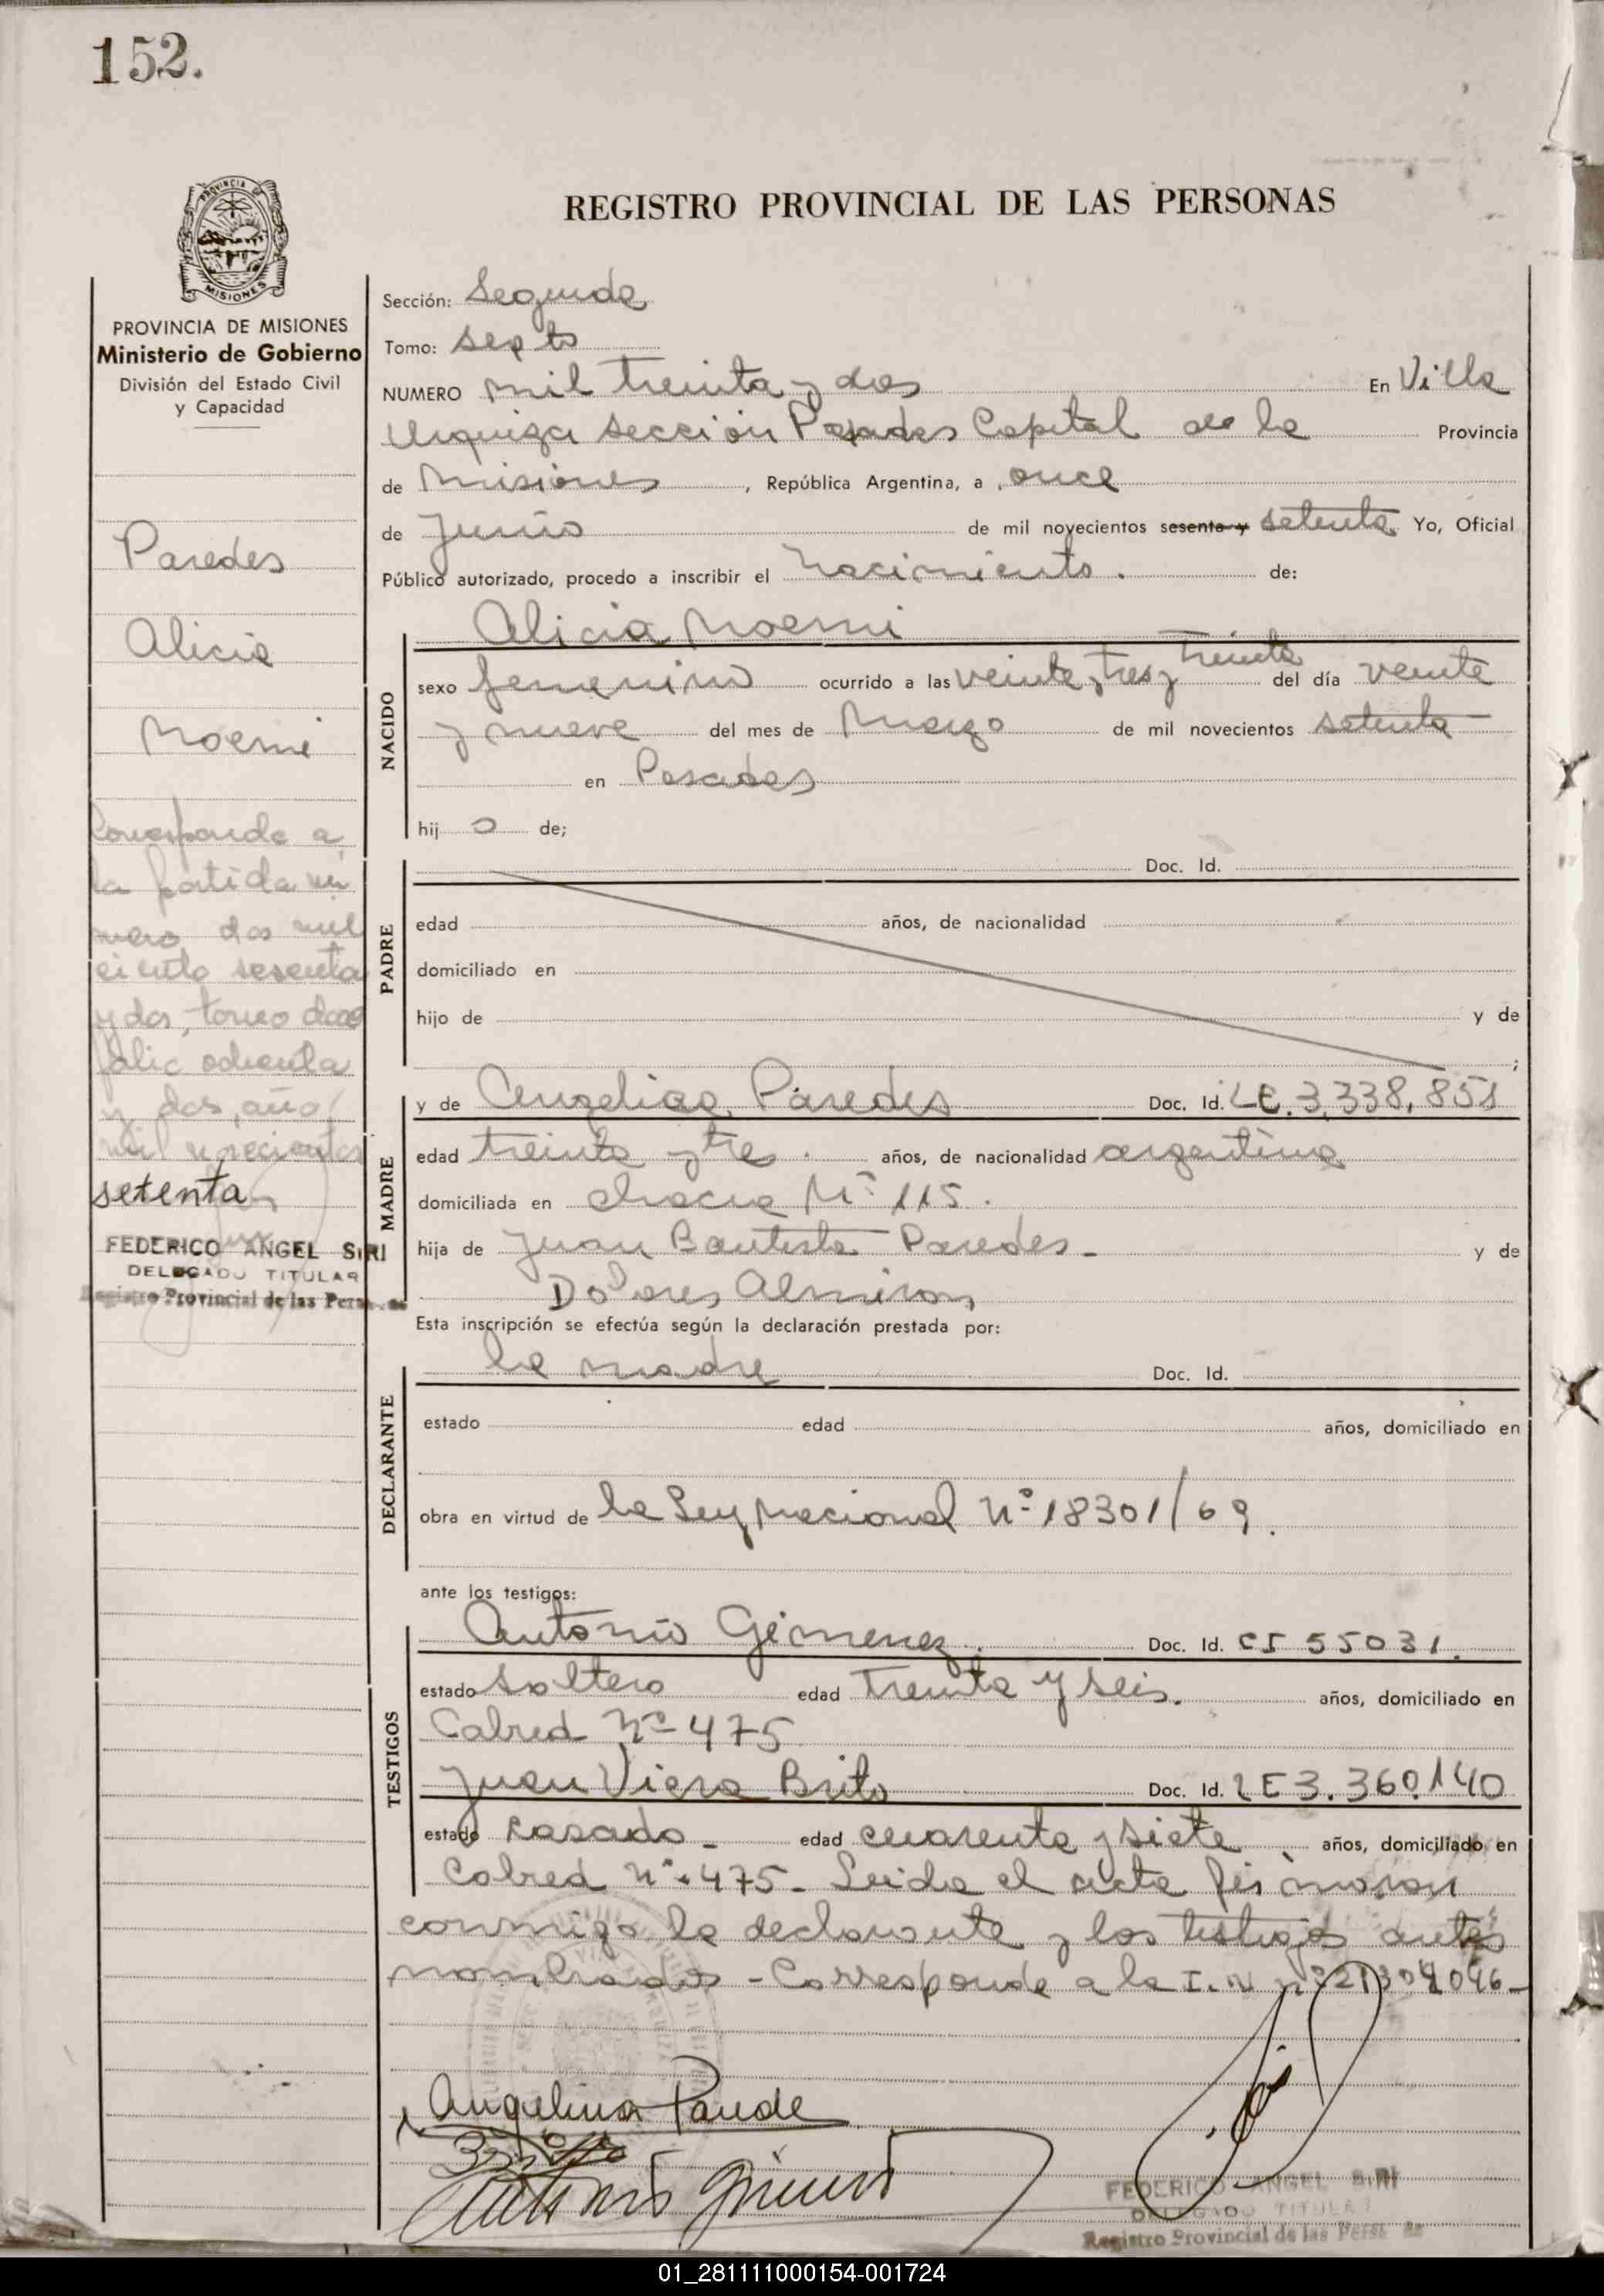 152.
REGISTRO PROVINCIAL DE LAS PERSONAS
PROVINCIA DE
MISIONES
PROVINCIA DE MISIONES
Ministerio de Gobierno
División del Estado Civil
y Capacidad
Paredes
Alicia
Noemi
Corresponde a
la partida nú
mero dos mil
ciento sesenta
y dos, tomo doce
folio ochenta
y dos, año
mil novecientos
setenta
FEDERICO ANGEL SIRI
DELEGADO TITULAR
Registro Provincial de las Personas
Sección: Segunda
Tomo: septo
NUMERO mil treinta y dos En Villa
Urquiza sección Posadas Capital de la Provincia
de Misiones, República Argentina, a once
de Junio de mil novecientos sesenta y setenta Yo, Oficial
Público autorizado, procedo a inscribir el Nacimiento. de:
NACIDO
Alicia Noemi
sexo femenino ocurrido a las veinte y tres y treinta del día veinte
y nueve del mes de Marzo de mil novecientos setenta
en Posadas
hij o de;
PADRE
Doc. Id.
edad años, de nacionalidad
domiciliado en
hijo de y de
;
MADRE
y de Angelica Paredes Doc. Id. LC. 3.338,851
edad treinta y tre. años, de nacionalidad argentina
domiciliada en chacra Nº 115.
hija de Juan Bautista Paredes- y de
Dolores Almiron
Esta inscripción se efectúa según la declaración prestada por:
DECLARANTE
la madre Doc. Id.
estado edad años, domiciliado en
obra en virtud de la Ley Nacional Nº 18301/69.
ante los testigos:
TESTIGOS
Antonio Gimenez. Doc. Id. CI 55031.
estado soltero edad treinta y seis. años, domiciliado en
Cabred Nº 475
Juan Viera Brito Doc. Id. LE 3.360.140
estado casado- edad cuarenta y siete años, domiciliado en
Cabred Nº 475- Leida el acta firmaron
conmigo la declarante y los testigos antes
nombrados - Corresponde a la I.N nº 21304046-
Angelina Parede
Antonio Gimenez
FEDERICO ANGEL SIRI
DELEGADO TITULAR
Registro Provincial de las Personas
01_281111000154-001724